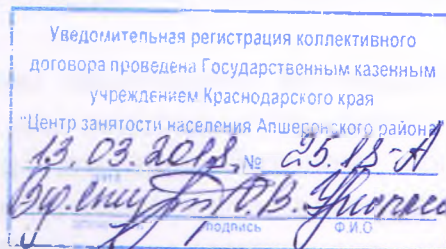 Уведомительная регистрация коллективного
договора проведена Государственным казенным
учреждением Краснодарского края
"Центр занятости населения Апшеронского района
13.03.2018 № 25.18-А
Ю.В.
подпись Ф.И.О